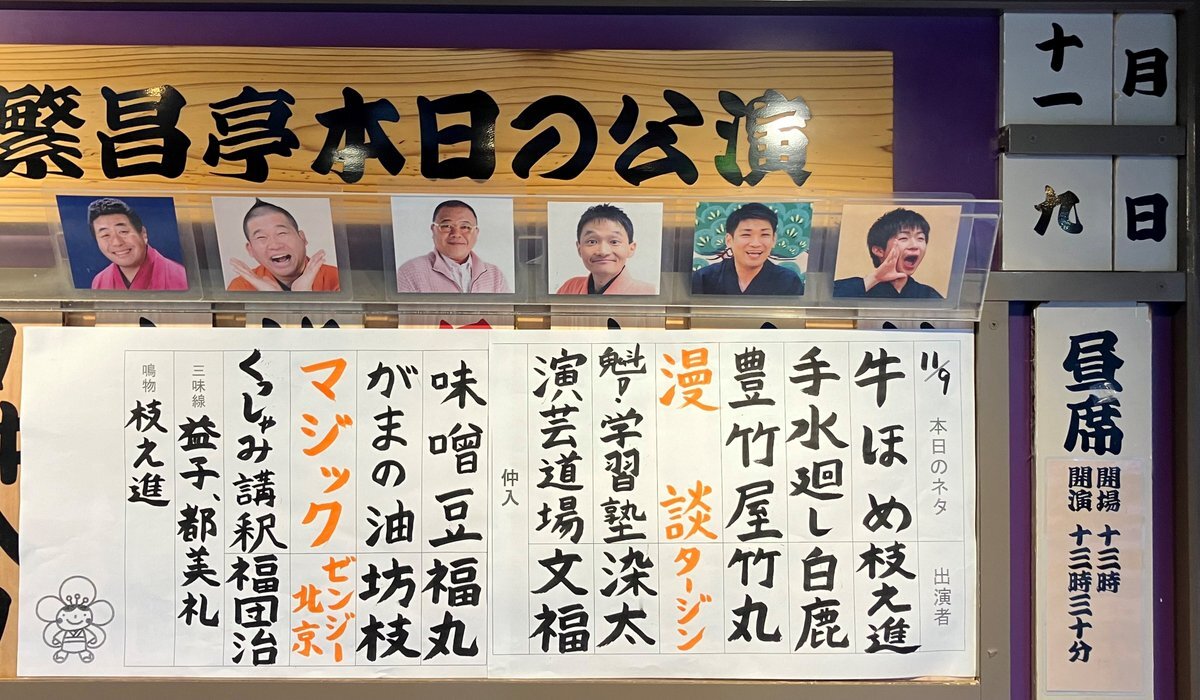 繁昌亭本日の公演
十一月
九日
昼席
開場 十三時
開演 十三時三十分
11/9 本日のネタ 出演者
牛ほめ 枝之進
手水廻し 白鹿
豊竹屋 竹丸
漫談 タージン
魁!学習塾 染太
演芸道場 文福
仲入
味噌豆 福丸
がまの油 坊枝
マジック ゼンジー北京
くっしゃみ講釈 福団治
三味線 益子、都美札
鳴物 枝之進